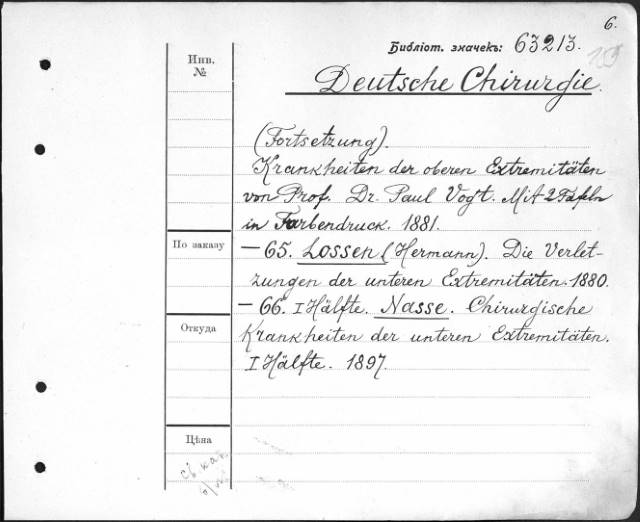 6.
Библіот. значекъ: 63213.
Инв.
№
Deutsche Chirurgie.
(Fortsetzung).
Krankheiten der oberen Extremitäten
von Prof. Dr. Paul Vogt. Mit 2 Tafeln
in Farbendruck. 1881.
По заказу
— 65. Lossen (Hermann). Die Verlet-
zungen der unteren Extremitäten. 1880.
— 66. I Hälfte. Nasse. Chirurgische
Откуда
Krankheiten der unteren Extremitäten.
I Hälfte. 1897.
Цѣна